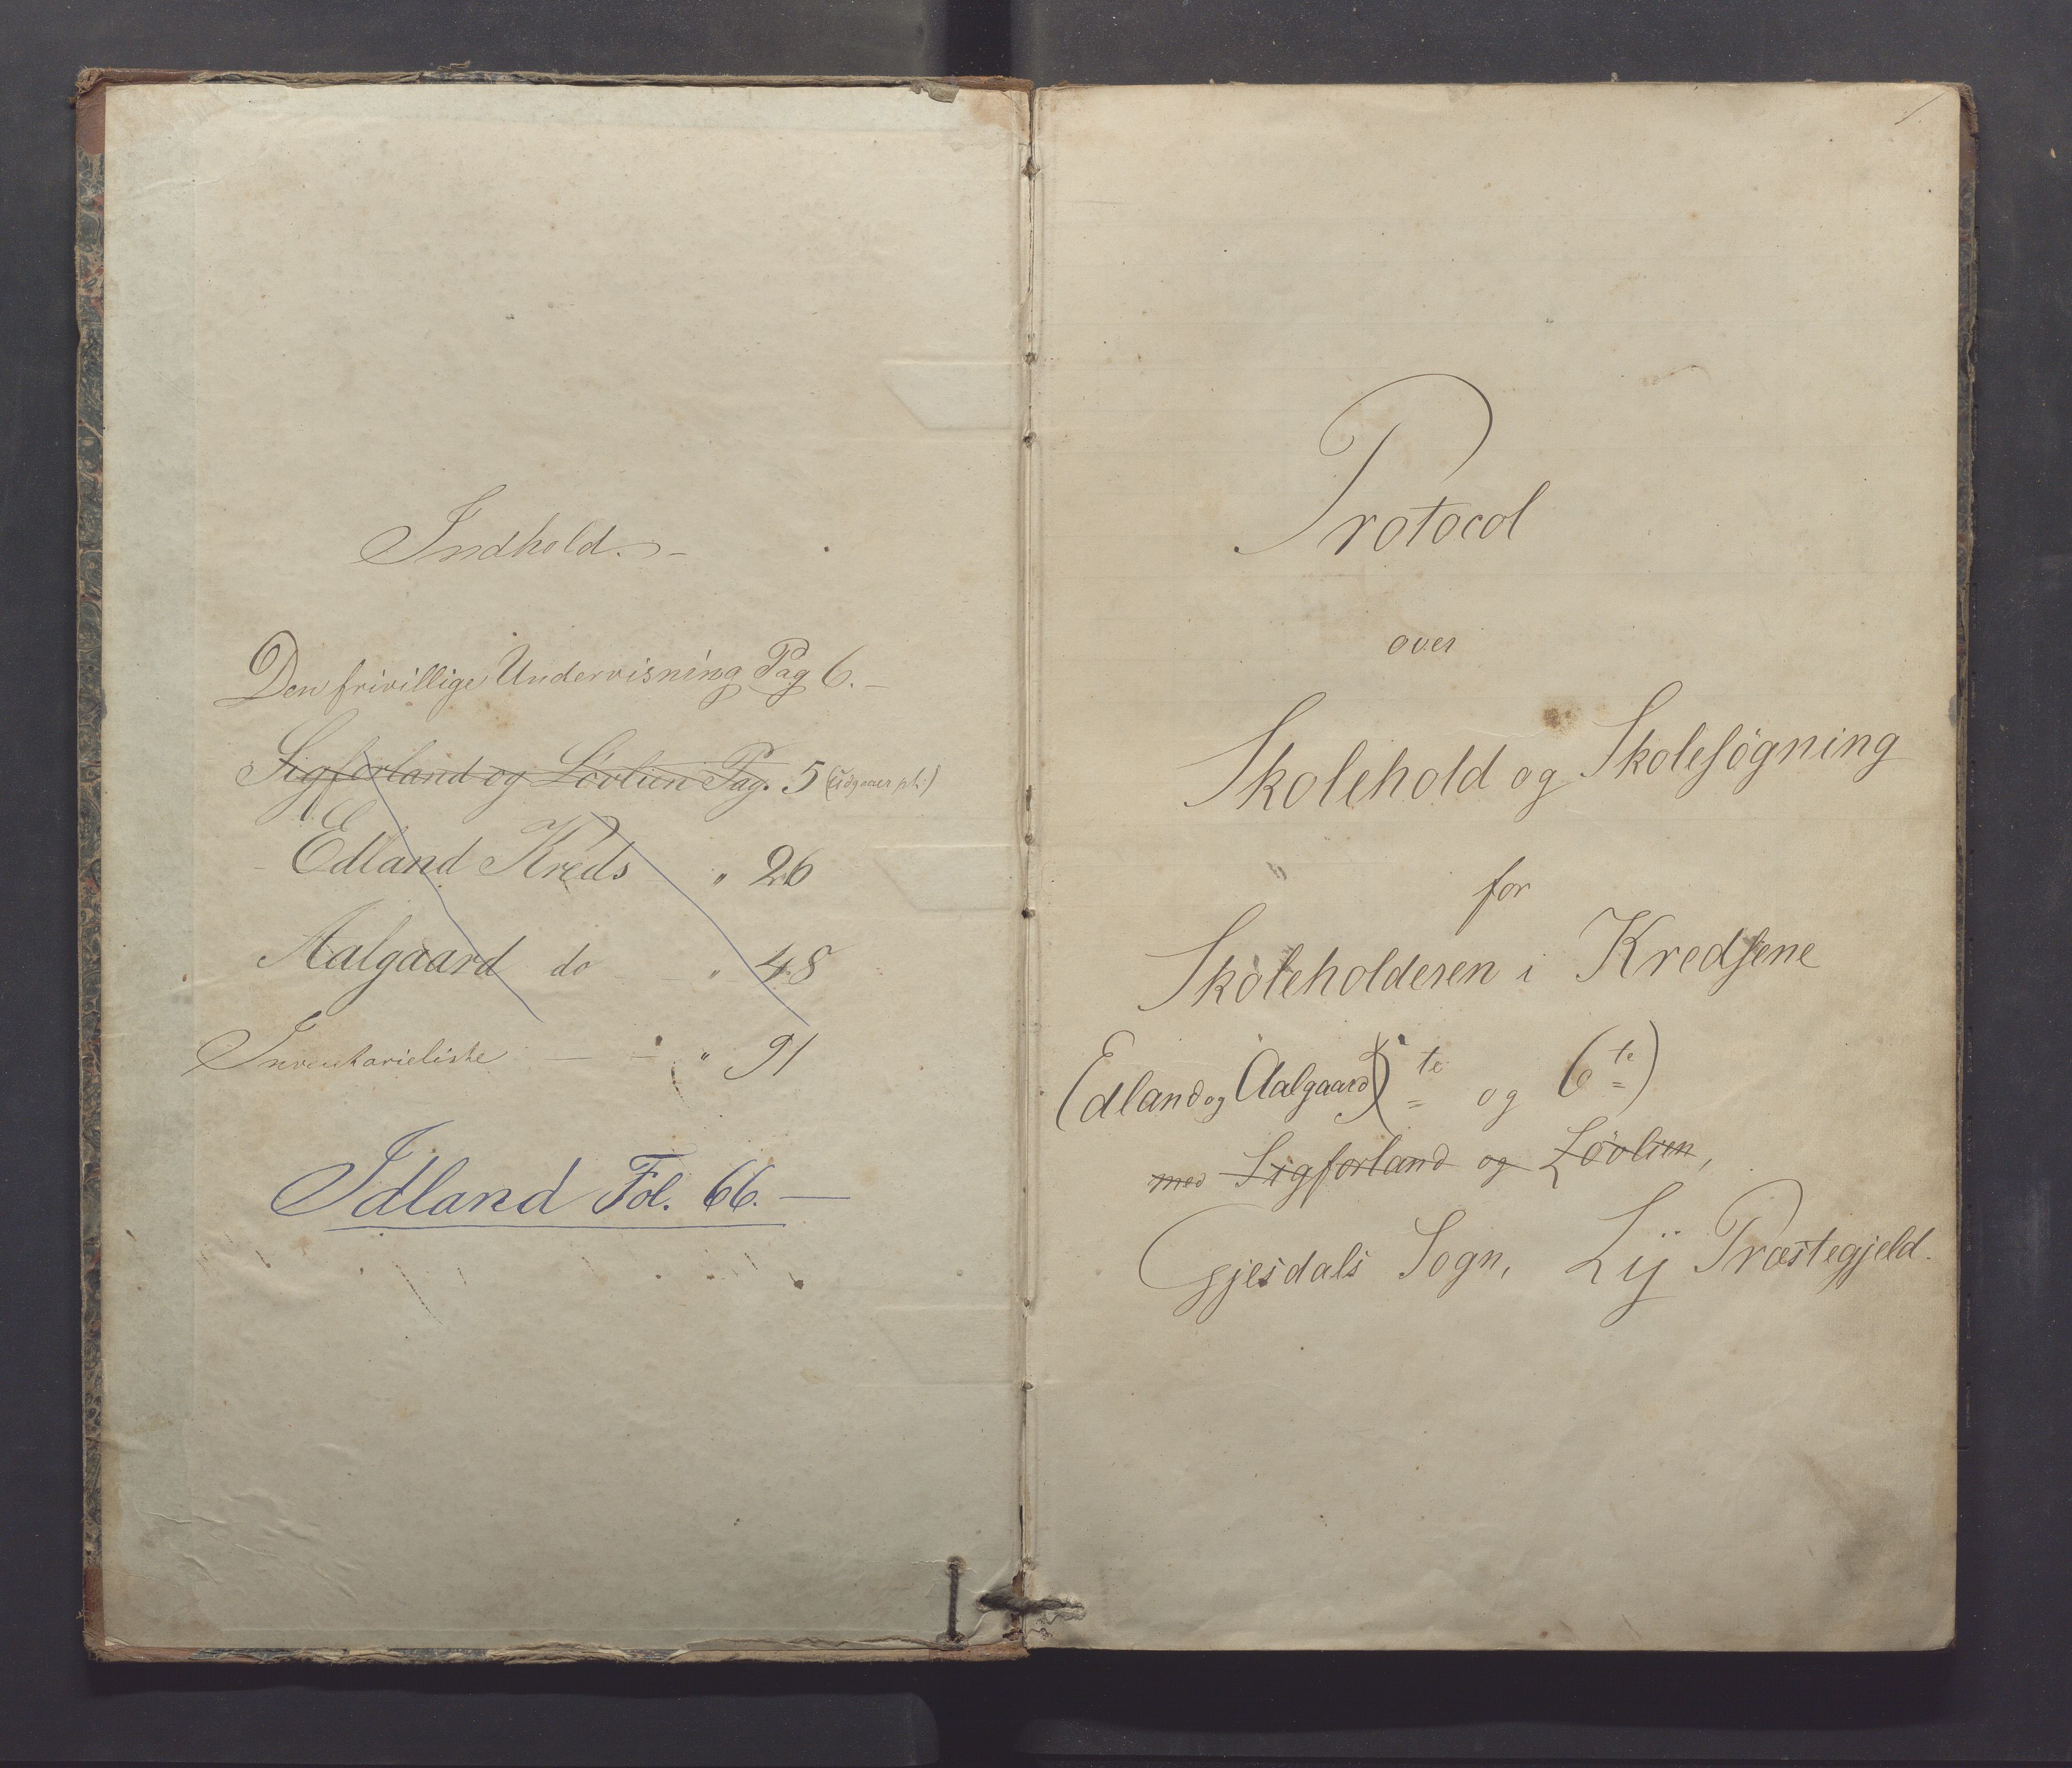 Indhold.
Den frivillige Undervisning Pag 6.
Sigforland og Lövlien Pag. 5 (Udgaaer pl.)
Edland Kreds " 26
Aalgaard do " 48
Inventarieliste — " 91
Idland Fol. 66.
1.
Protocol
over
Skolehold og Skolesögning
for
Skoleholderen i Kredsene
(Edland og Aalgaard) te og 6te)
med Sigforland og Lövlien,
Gjesdals Sogn, Lÿ Præstegjeld.